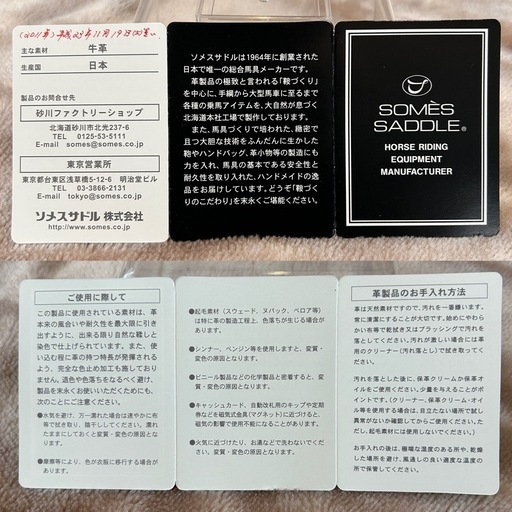 (2011年) 平成23年11月19日(土)
主な素材 牛革
生産国 日本
製品のお問合せ先
砂川ファクトリーショップ
北海道砂川市北光237-6
TEL 0125-53-5111
E-mail somes@somes.co.jp
東京営業所
東京都台東区浅草橋5-12-6 明治堂ビル
TEL 03-3866-2131
E-mail tokyo@somes.co.jp
ソメスサドル 株式会社
http://www.somes.co.jp
ソメスサドルは1964年に創業された
日本で唯一の総合馬具メーカーです。
革製品の極致と言われる「鞍づくり」
を中心に、手綱から大型馬車に至るまで
各種の乗馬アイテムを、大自然が息づく
北海道本社工場で製作しております。
また、馬具づくりで培われた、緻密で
且つ大胆な技術をふんだんに生かした
鞄やハンドバッグ、革小物等の製造にも
力を入れ、馬具の基本である安全性と
耐久性を取り入れた、ハンドメイドの逸
品をお届けしています。どうぞ「鞍づく
りのこだわり」を末永くご堪能ください。
SOMÈS
SADDLE®
HORSE RIDING
EQUIPMENT
MANUFACTURER
ご使用に際して
この製品に使用されている素材は、革
本来の風合いや耐久性を最大限に引き
出すように、出来る限り自然な戟しと
染色で仕上げられています。また、使
い込む程に革の持つ特長が発揮される
よう、完全な色止め加工も施しており
ません。退色や色落ちをなるべく避け、
製品を末永くお使いいただくためにも、
次のことにご注意ください。
●水気を避け、万一濡れた場合は速やかに布
等で拭き取り、陰干ししてください。濡れ
たままにしておくと変質・変色の原因となり
ます。
●摩擦等により、色が衣服に移行する場合が
あります。
●起毛素材(スウェード、ヌバック、ベロア等)
は特に革の製造工程上、色落ちが生じる場合が
あります。
●シンナー、ベンジン等を使用しますと、変質・
変色の原因となります。
●ビニール製品などの化学製品と密着すると、変
質・変色の原因となります。
●キャッシュカード、自動改札用のキップや定期
券などを磁気式金具(マグネット)に近づけると、
磁気の影響で使用不能になることがあります。
●火気に近づけたり、お湯などで洗わないでくだ
さい。変質・変色の原因となります。
革製品のお手入れ方法
革は天然素材ですので、汚れを一番嫌います。
常に清潔にすることが大切です。始めにやわら
かい布等で乾拭き又はブラッシングで汚れを
落としてください。汚れが激しい場合には革
用のクリーナー(汚れ落とし)で拭き取ってく
ださい。
汚れを落とした後に、保革クリームか保革オ
イルをご使用ください。少量を与えることがポ
イントです。(クリーナー、保革クリーム・オイ
ル等を使用する場合は、目立たない場所で試し
異常がないか確認してからご使用ください。
ただし、起毛素材には使用しないでください。)
お手入れの後は、極端な湿度のある所や、乾燥
した場所を避け、風通しの良い適度な温度の所
で保管してください。